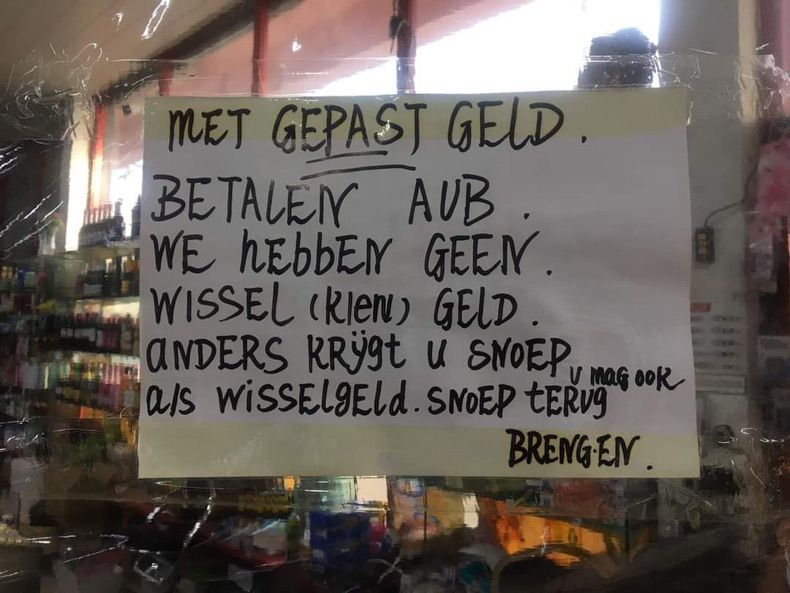 MET GEPAST GELD.
BETALEN AUB.
WE hEbbEN GEEN.
WISSEL (klEN) GELD.
ANDERS KRÿgt U SNOEP
als WiSSElgEld. SNOEP tERUg
U mag ook
BRENG.EN.